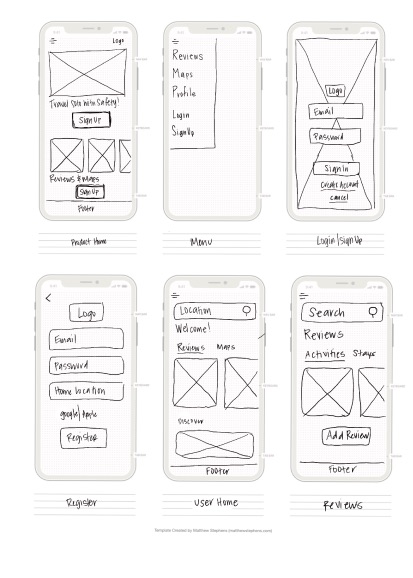 Logo
Travel Solo with Safety!
Sign Up
Reviews & Maps
Sign Up
Footer
Product Home
Reviews
Maps
Profile
Login
Sign Up
Menu
Logo
Email
Password
Sign In
Create Account
cancel
Login/Sign Up
Logo
Email
Password
Home Location
google/Apple
Register
Register
Location
Welcome!
Reviews Maps
Discover
Footer
User Home
Search
Reviews
Activities Stays
Add Review
Footer
Reviews
Template Created by Matthew Stephens (matthewstephens.com)